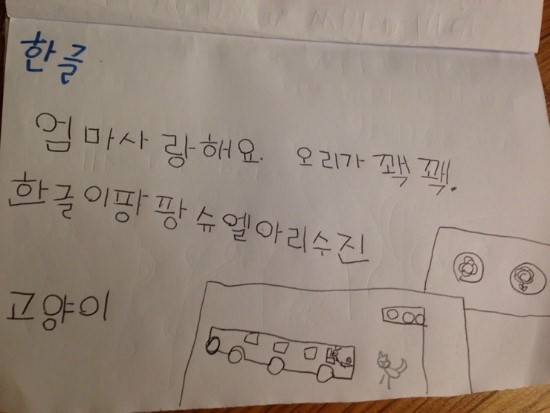 한글
엄마사랑해요. 오리가 꽥꽥.
한글이팡팡슈엘아리수진
고양이